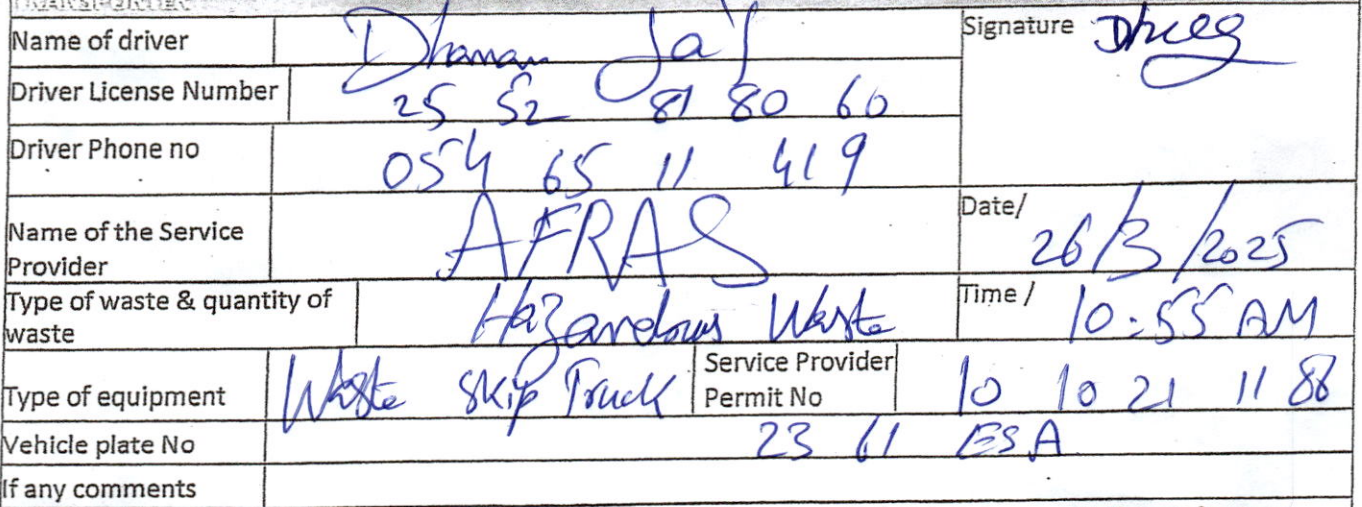 TRANSPORTER
Name of driver Dhanan Jay Signature
Driver License Number 25 52 81 80 60
Driver Phone no 054 65 11 419
Name of the Service Provider AFRAS Date/ 26/3/2025
Type of waste & quantity of waste Hazardous Waste Time / 10:55 AM
Type of equipment Waste Skip Truck Service Provider Permit No 10 10 21 11 88
Vehicle plate No 23 61 ESA
If any comments